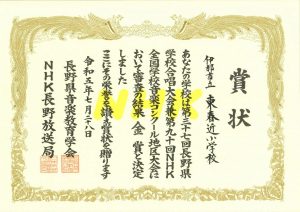 賞状
伊那市立 東春近小学校
あなたの学校は第三十七回長野県
学校合唱大会兼第九十回NHK
全国学校音楽コンクール地区大会に
おいて審査の結果 金賞と決定
しました
ここにその栄誉を讃え賞状を贈ります
令和五年七月二十八日
長野県音楽教育学会
NHK長野放送局